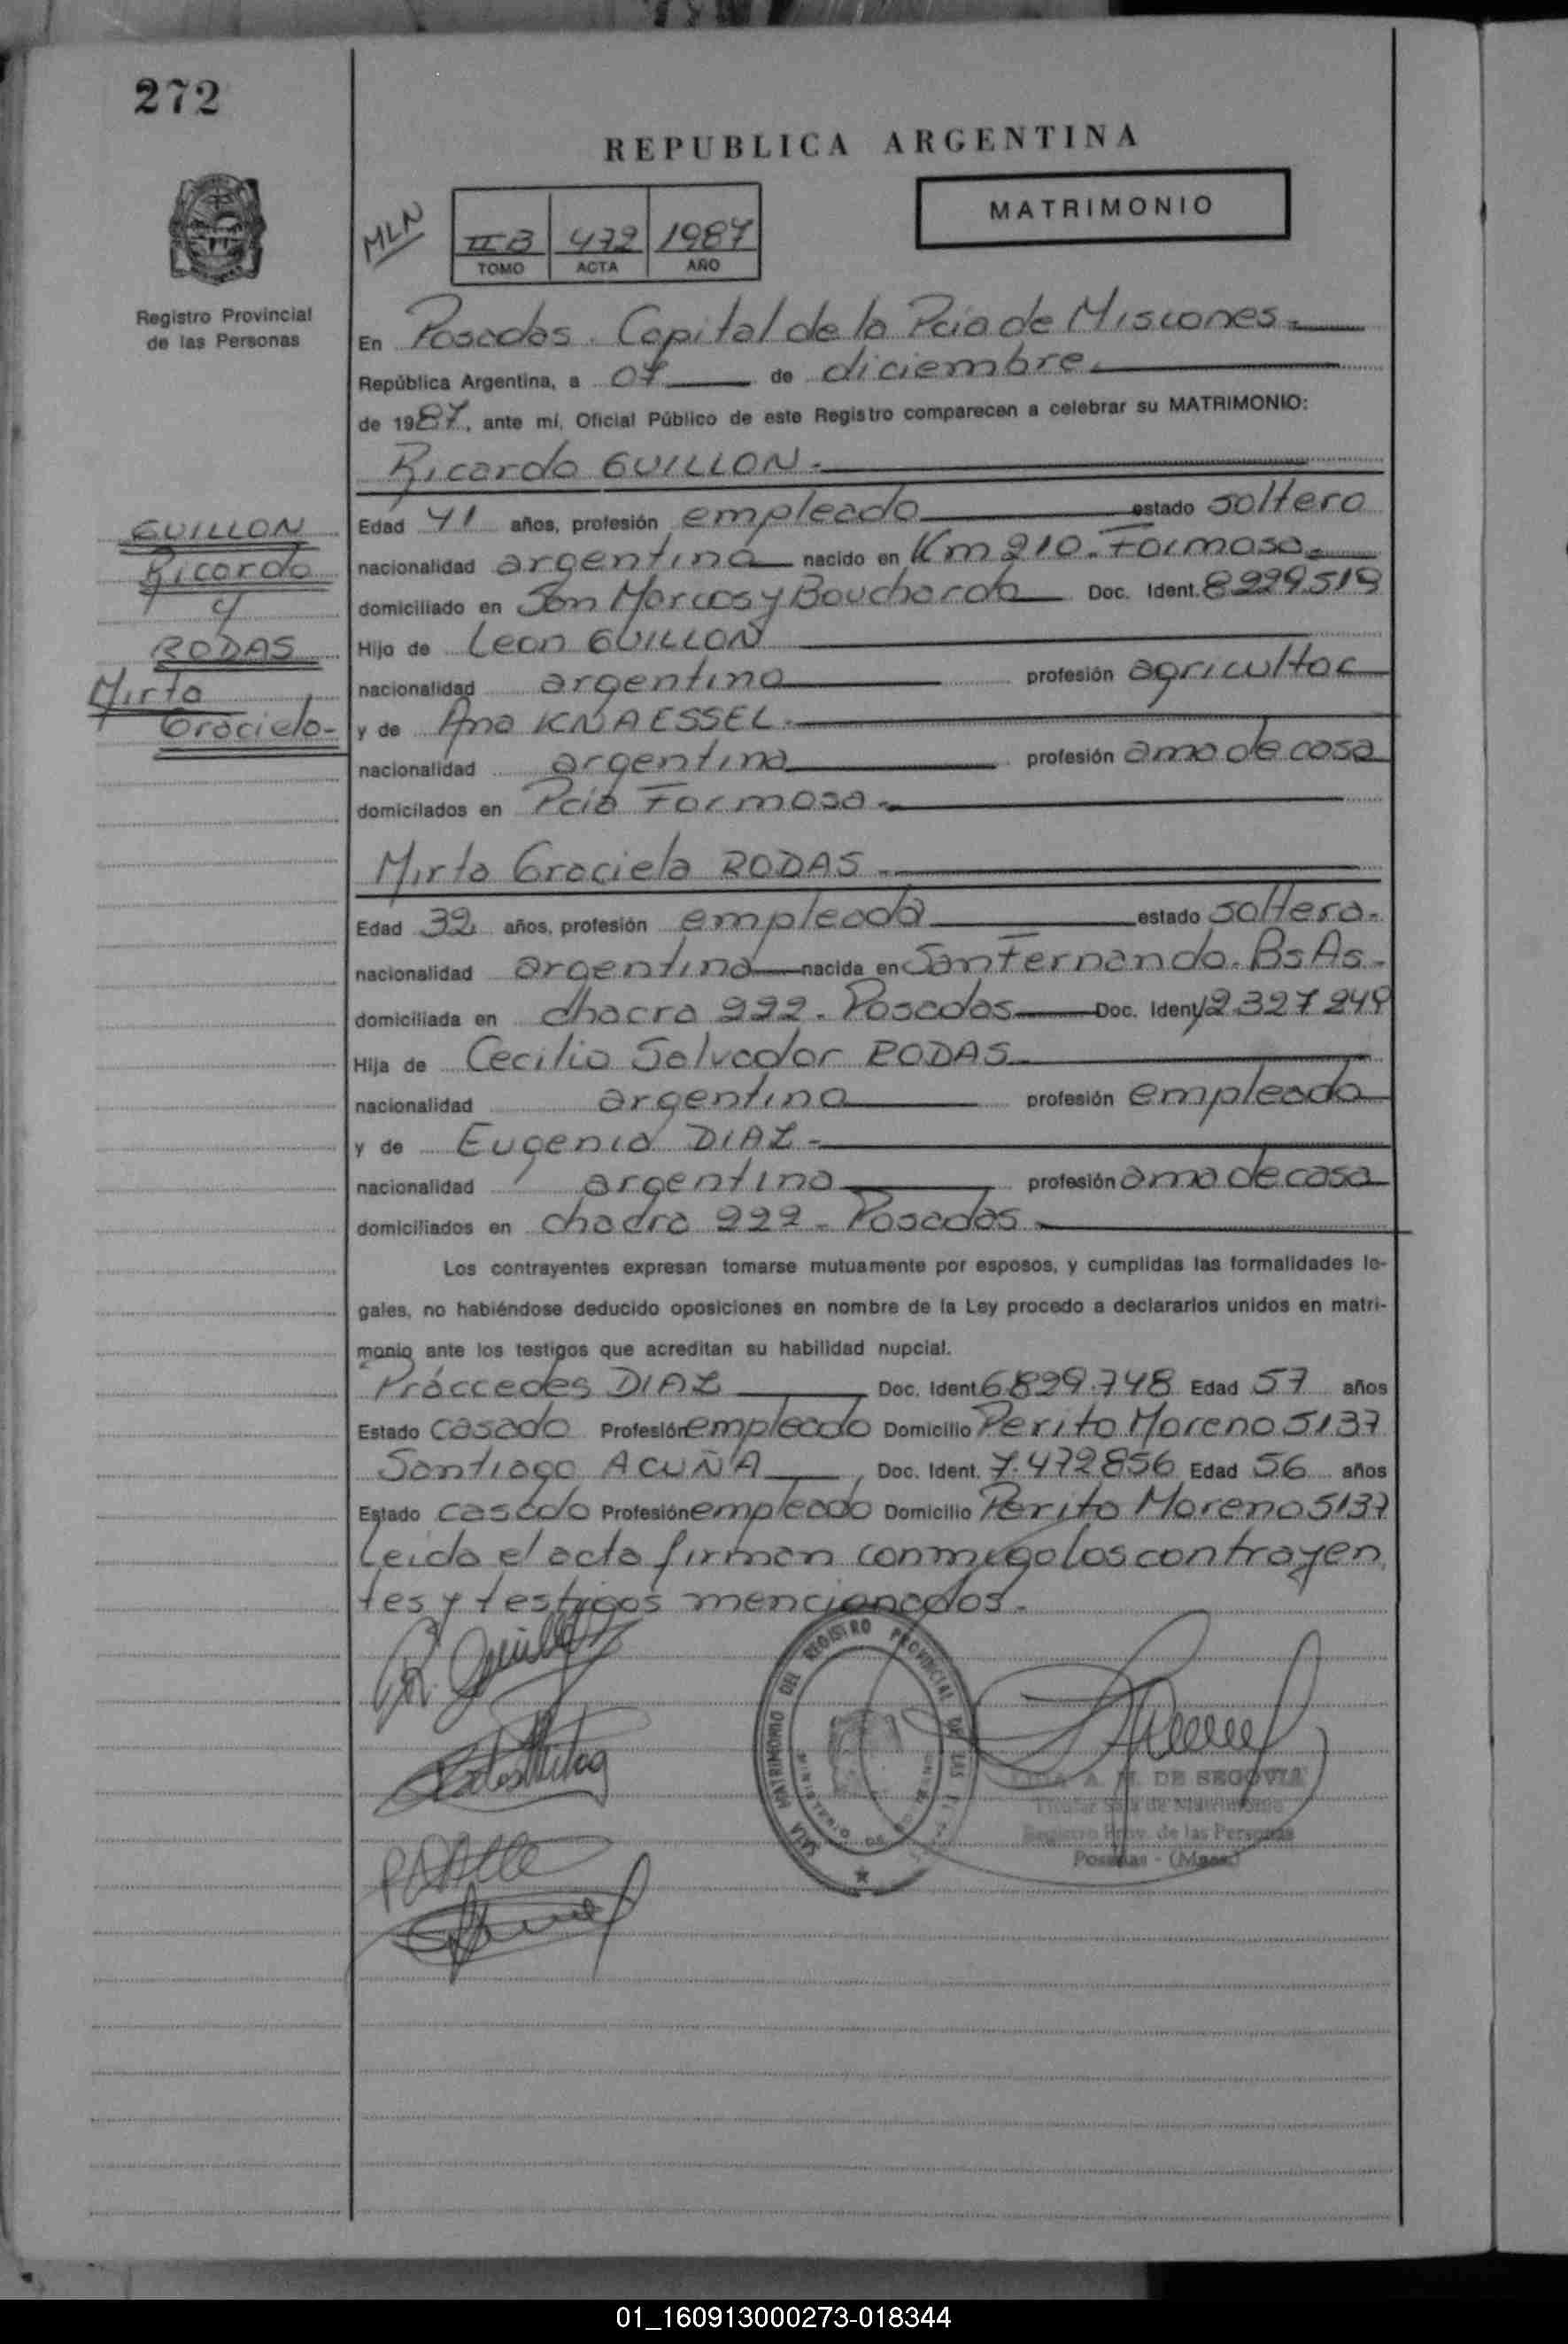 272
REPUBLICA ARGENTINA
MATRIMONIO
MLN
II B 472 1987
TOMO ACTA AÑO
Registro Provincial
de las Personas
En Posadas. Capital de la Pcia de Misiones.
República Argentina, a 07 de diciembre.
de 1987, ante mí, Oficial Público de este Registro comparecen a celebrar su MATRIMONIO:
Ricardo GUILLON.
GUILLON
Ricardo
y
RODAS
Mirta
Graciela-
Edad 41 años, profesión empleado estado soltero
nacionalidad argentina nacido en Km 210. Formosa.
domiciliado en San Marcos y Bouchardo Doc. Ident. 8229.519
Hijo de Leon GUILLON
nacionalidad argentina profesión agricultor
y de Ana KNAESSEL.
nacionalidad argentina profesión ama de casa
domicilados en Pcia Formosa.
Mirta Graciela RODAS.
Edad 32 años, profesión empleada estado soltera.
nacionalidad argentina nacida en San Fernando. Bs As.
domiciliada en chacra 222. Posadas Doc. Ident. 12.327249
Hija de Cecilio Salvador RODAS
nacionalidad argentina profesión empleado
y de Eugenia DIAZ.
nacionalidad argentina profesión ama de casa
domiciliados en chacra 222. Posadas.
Los contrayentes expresan tomarse mutuamente por esposos, y cumplidas las formalidades le-
gales, no habiéndose deducido oposiciones en nombre de la Ley procedo a declararlos unidos en matri-
monio ante los testigos que acreditan su habilidad nupcial.
Práccedes DIAZ Doc. Ident. 6.829.748 Edad 57 años
Estado casado Profesión empleado Domicilio Perito Moreno 5137
Santiago ACUÑA, Doc. Ident. 7.472856 Edad 56 años
Estado casado Profesión empleado Domicilio Perito Moreno 5137
Leida el acta firman conmigo los contrayen
tes y testigos mencionados.
R. Guillon
SALA MATRIMONIO DEL REGISTRO PROVINCIAL DE LAS
A. M. DE SEGOVIA
Titular Sala de Matrimonio
Registro Prov. de las Personas
Posadas - (Mnes.)
01_160913000273-018344